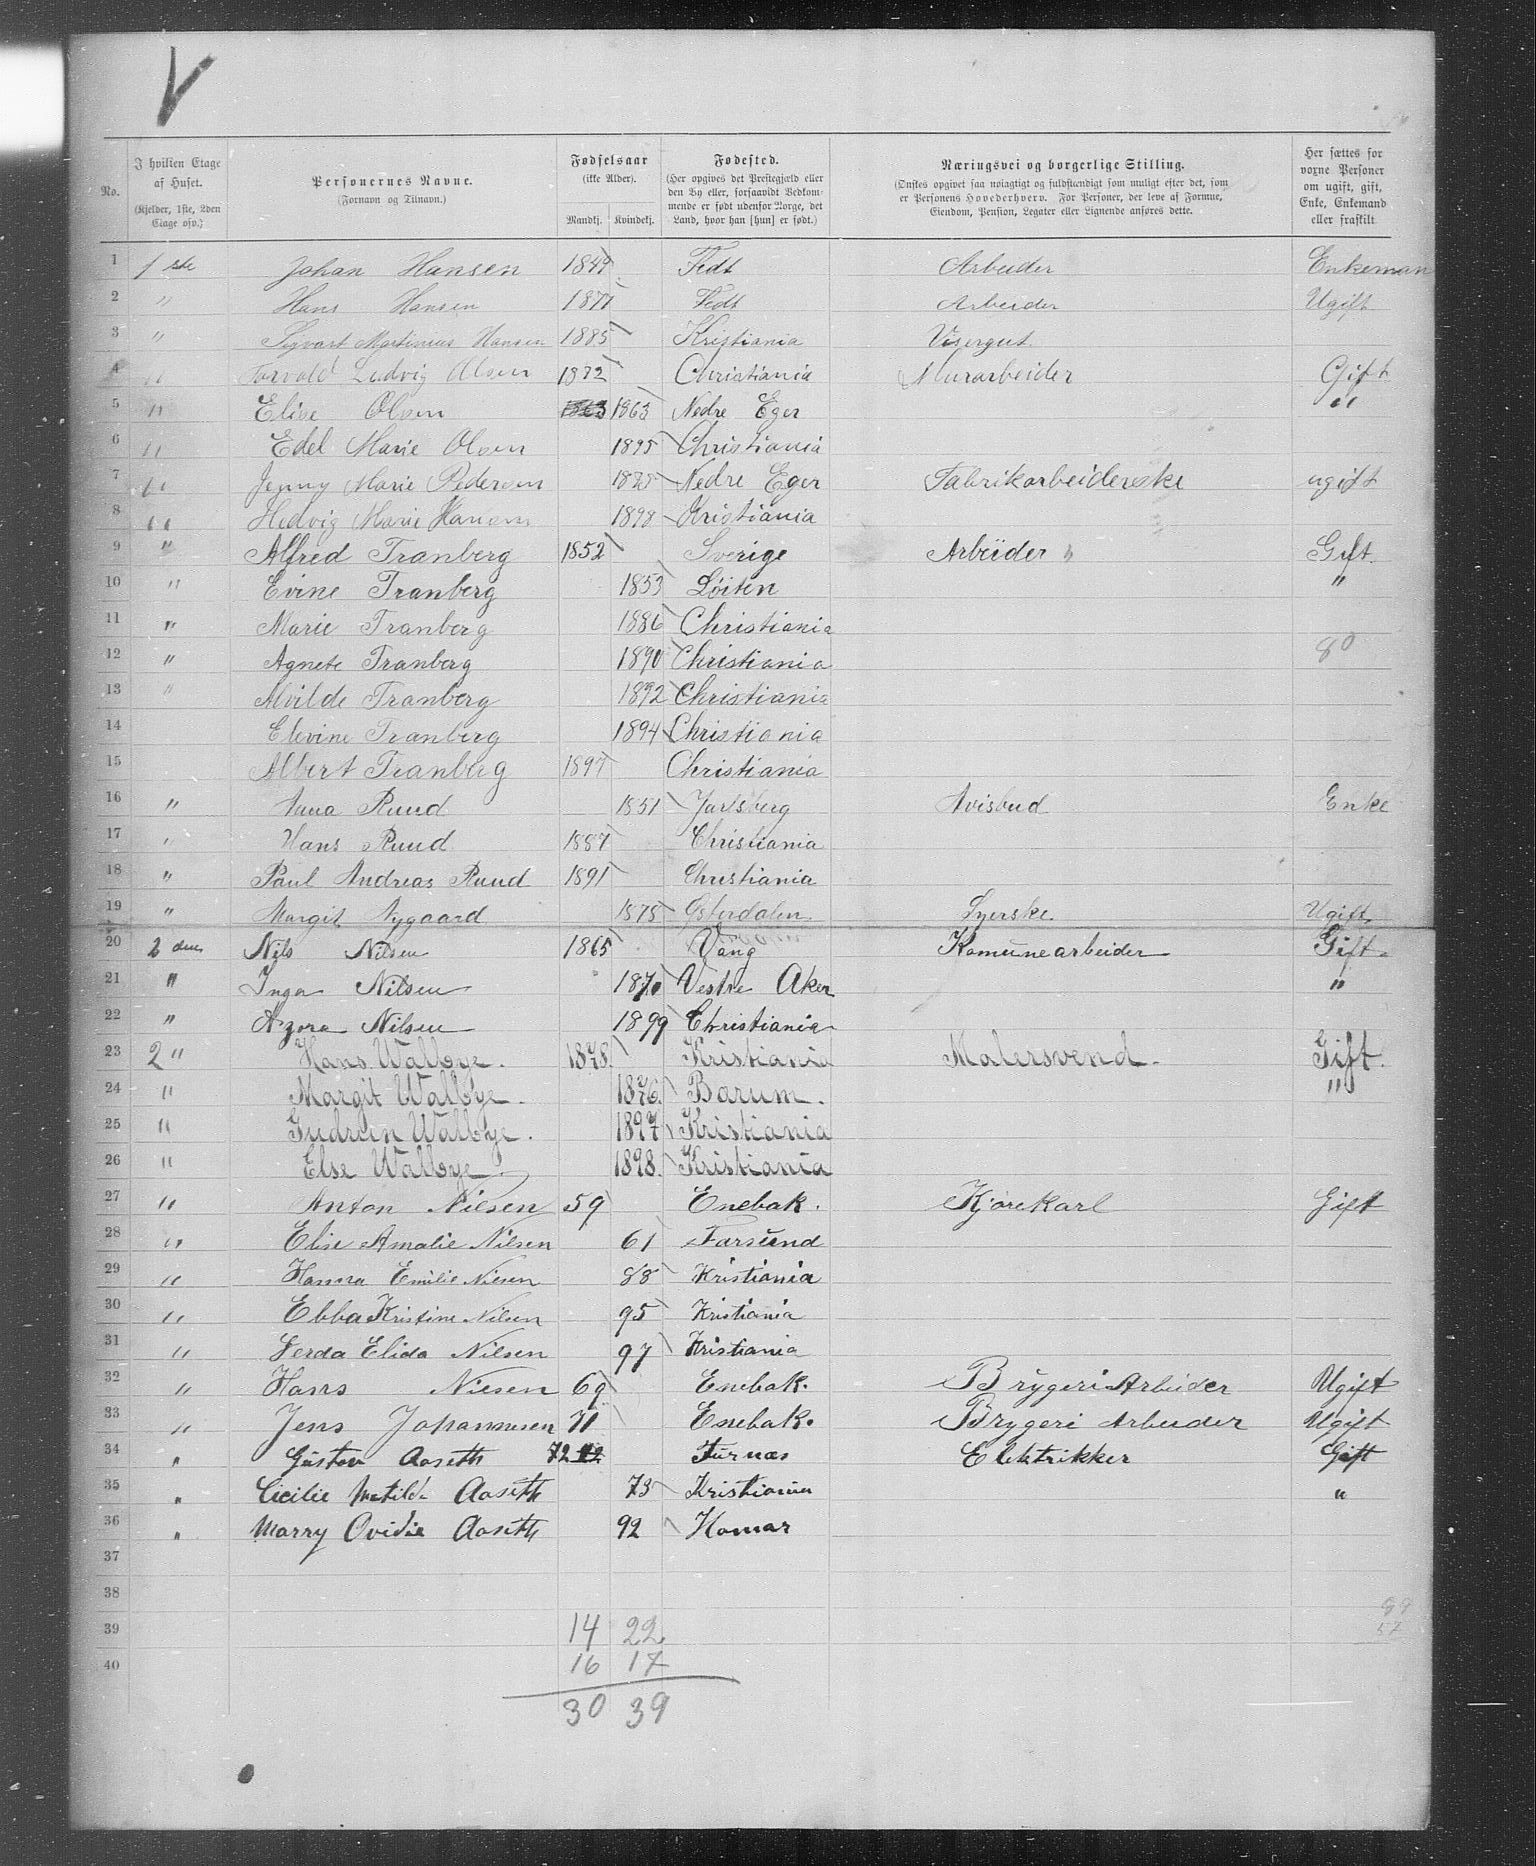 V
No. | I hvilken Etage af Huset. (Kjelder, 1ste, 2den Etage osv.) | Personernes Navne. (Fornavn og Tilnavn.) | Fødselsaar (ikke Alder). Mandkj. | Kvindekj. | Fødested. (Her opgives det Prestegjæld eller den By eller, forsaavidt Vedkommende er født udenfor Norge, det Land, hvor han [hun] er født.) | Næringsvei og borgerlige Stilling. (Ønskes opgivet saa nøiagtigt og fuldstændigt som muligt efter det, som er Personens Hovederhverv. For Personer, der leve af Formue, Eiendom, Pension, Legater eller Lignende anføres dette.) | Her sættes for voxne Personer om ugift, gift, Enke, Enkemand eller fraskilt
1 | 1 ste | Johan Hansen | 1849 | | Fedt | Arbeider | Enkeman
2 | " | Hans Hansen | 1877 | | Fedt | Arbeider | Ugift
3 | " | Sigvart Martinius Hansen | 1885 | | Kristiania | Visergut
4 | " | Torvald Ludvig Olsen | 1872 | | Christiania | Murarbeider | Gift
5 | " | Elise Olsen | | 1863 | Nedre Eger | | "
6 | " | Edel Marie Olsen | | 1895 | Christiania
7 | " | Jenny Marie Pedersen | | 1875 | Nedre Eger | Fabrikarbeiderske | ugift
8 | " | Hedvig Marie Hansen | | 1898 | Kristiania
9 | " | Alfred Tranberg | 1852 | | Sverige | Arbeider | Gift.
10 | " | Evine Tranberg | | 1853 | Løiten | | "
11 | " | Marie Tranberg | | 1886 | Christiania
12 | " | Agnete Tranberg | | 1890 | Christiania | | 80
13 | " | Alvilde Tranberg | | 1892 | Christiania
14 | | Elevine Tranberg | | 1894 | Christiania
15 | | Albert Tranberg | 1897 | | Christiania
16 | " | Anna Ruud | | 1851 | Jarlsberg | Avisbud | Enke
17 | " | Hans Ruud | 1887 | | Christiania
18 | " | Paul Andreas Ruud | 1891 | | Christiania
19 | " | Margit Nygaard | | 1878 | Østerdalen | Syerske. | Ugift.
20 | 2 den | Nils Nilsen | 1865 | | Vang | Komünearbeider | Gift
21 | " | Inga Nilsen | | 1870 | Vestre Aker | | "
22 | " | Azora Nilsen | | 1899 | Christiania
23 | 2 " | Hans Walbye. | 1878. | | Kristiania | Malersvend. | Gift.
24 | " | Margit Walbye. | | 1876. | Barum. | | "
25 | " | Gudrun Walbye. | | 1897 | Kristiania
26 | " | Else Walbye. | | 1898. | Kristiania
27 | " | Anton Nielsen | 59 | | Enebak. | Kjørekarl | Gift
28 | " | Elise Amalie Nilsen | | 61 | Farsund
29 | " | Hanna Emilie Nielsen | | 88 | Kristiania
30 | " | Ebba Kristine Nilsen | | 95 | Kristiania
31 | " | Gerda Elida Nilsen | | 97 | Kristiania
32 | " | Hans Nielsen | 69 | | Enebak. | Brygeri Arbeider | Ugift
33 | " | Jens Johannesen | 71 | | Enebak. | Brygeri Arbeider | Ugift
34 | " | Güstav Aaseth | 72 | | Furnæs | Elektrikker | Gift
35 | " | Cicilie Matilde Aaseth | | 73 | Kristiania | | "
36 | " | Marry Ovidie Aaseth | | 92 | Hamar
37
38
39 | 14 | 22
40 | 16 | 17
30 | 39